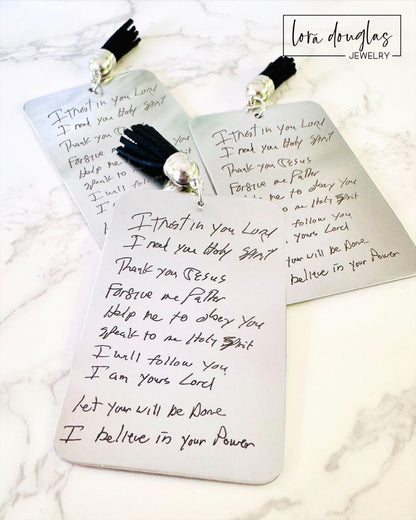 lora douglas
JEWELRY
I trust in you Lord
I need you Holy Spirit
Thank you Jesus
Forgive me Father
Help me to obey you
speak to me Holy Spirit
I will follow you
I am yours Lord
Let your will be Done
I believe in your Power
I trust in you Lord
I need you Holy Spirit
Thank you
Forgive me
Help me
speak to
I will
I am
I trust in you Lord
I need you Holy Spirit
Thank you Jesus
Forgive me Father
to obey you
to me Holy Spirit
follow you
yours Lord
your will be Done
believe in your Power